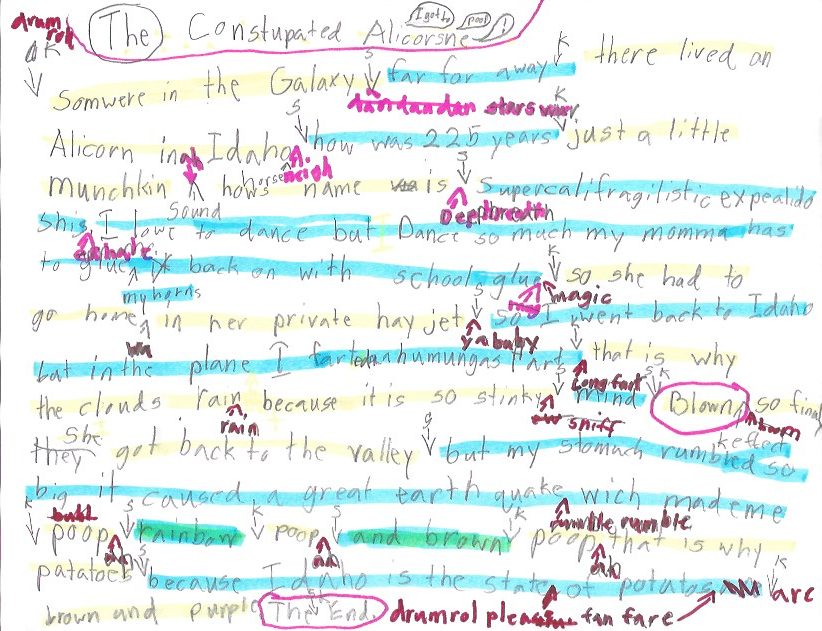 drum roll
The Constupated Alicorsne
I got to poop !
K
S K
Somwere in the Galaxy far far away there lived an
dandandandan stars wars
S K
Alicorn in Idaho how was 225 years just a little
ah neigh
munchkin hows horse name is Supercalifragilistic expealido
Sound
Deep breath
shis I love to dance but Dance so much my momma has
to glue it back on with school glue so she had to
my horns
magic
go home in her private hay jet so I went back to Idaho
wa ya baby
but in the plane I farted an humungas fart that is why
Long fart
the clouds rain because it is so stinky mind Blown so final
rain sniff
they She got back to the valley but my stomuch rumbled so
big it caused a great earth quake wich made me
butt rumble rumble
poop rainbow poop and brown poop that is why
patatoes because Idaho is the state of potatos are
brown and purple The End. drumrol please fan fare